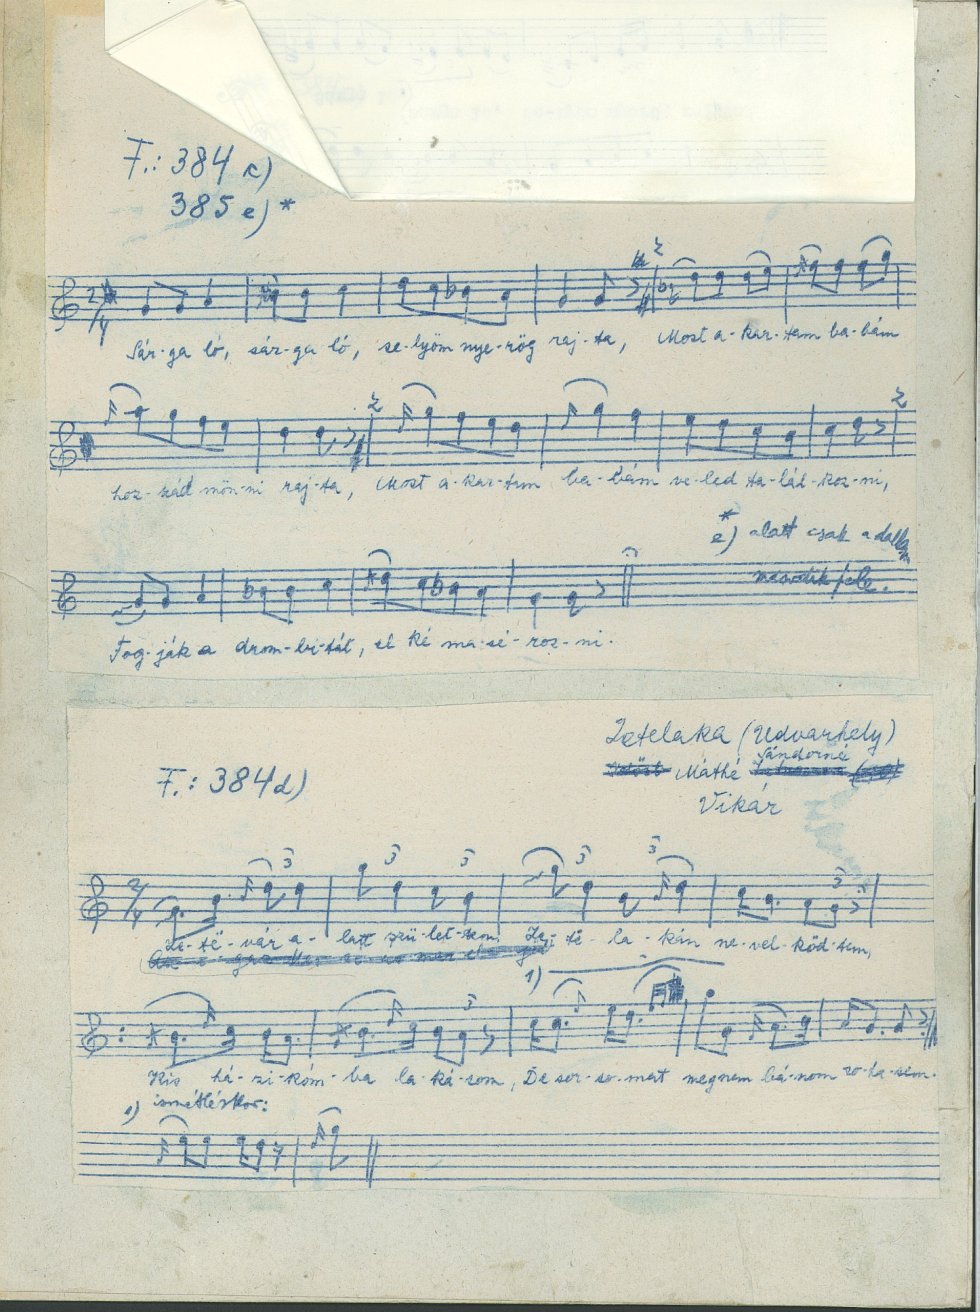 F.: 384 c)
385 e) *
2/4
Sár-ga ló, sár-ga ló, se-lyöm nye-rög raj-ta, Most a-kar-tam ba-bám
hoz-zád mön-ni raj-ta, Most a-kar-tam ba-bám ve-led ta-lál-koz-ni,
* e) alatt csak a dallam
második fele.
Fog-ják a drom-bi-tát, el ké ma-sé-roz-ni.
Zetelaka (Udvarhely)
Sándorné
F.: 384 d)
Máthé
Vikár
3 3 3 3 3
2/4
3
Ze-te-vár a-latt szü-let-tem, Ze-te-la-kán ne-vel-ked-tem,
1)
3
Kis há-zi-kóm-ba la-ká-som, De sor-so-mat megnem bá-nom so-ha-sem.
1) ismétléskor: